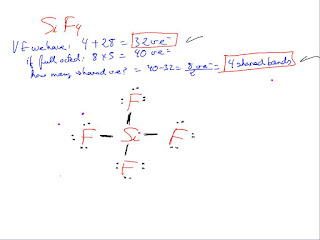 SiF4
VE we have: 4 + 28 = 32 ve⁻ ✓
if full octed: 8 x 5 = 40 ve⁻
how many shared ve⁻? = 40-32 = 8ve⁻/2 = 4 shared bonds ✓
F
F – Si – F
F